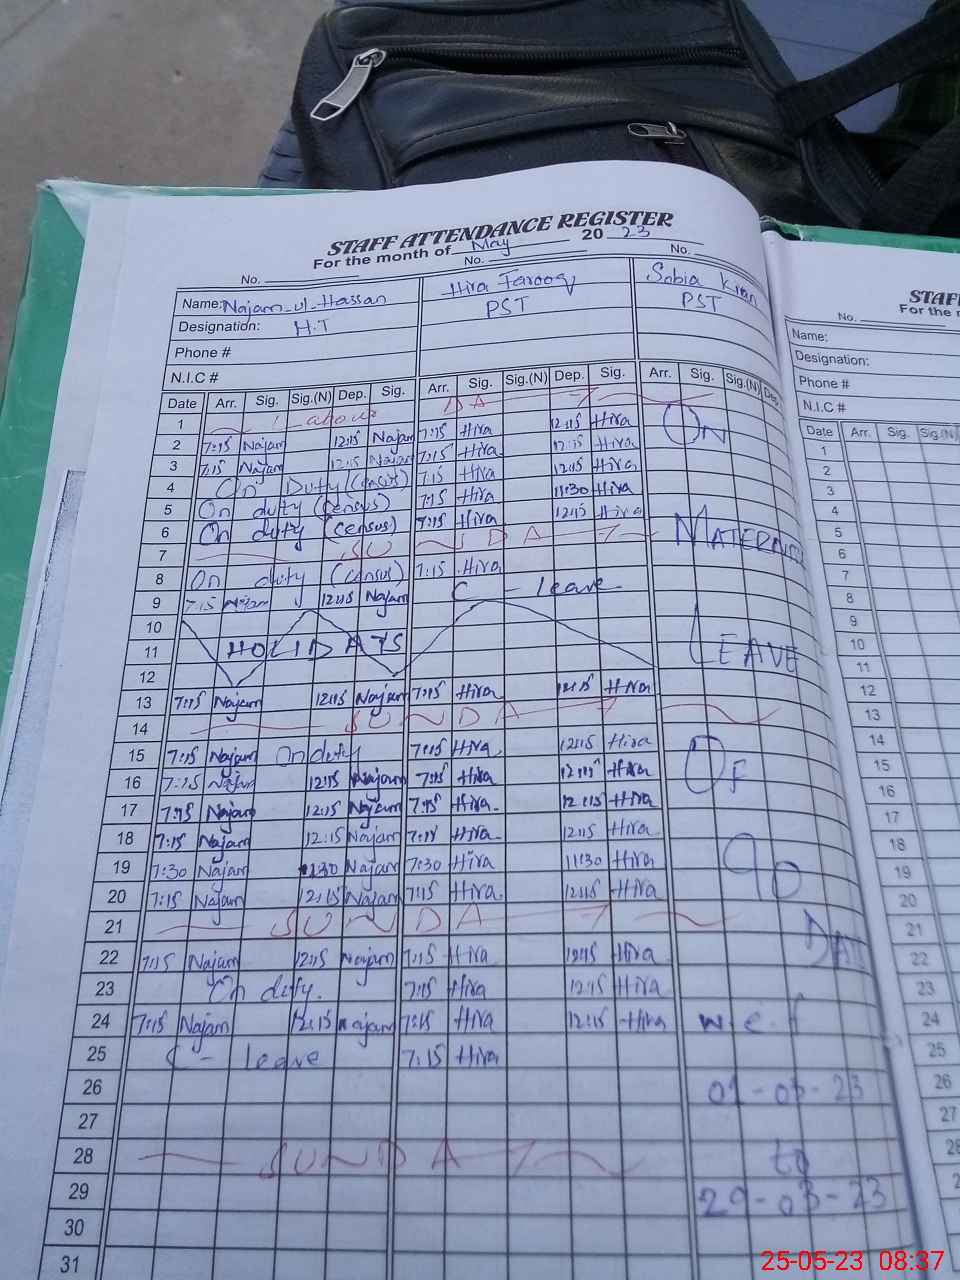 STAFF ATTENDANCE REGISTER
For the month of May 20 23
No. No. No.
Name: Najam-ul-Hassan Hira Farooq Sobia Kiran
Designation: H.T PST PST
Phone #
N.I.C #
Date Arr. Sig. Sig.(N) Dep. Sig. Arr. Sig. Sig.(N) Dep. Sig. Arr. Sig. Sig.(N) Dep.
1 Labour DAY
2 7:15 Najam 12:15 Najam 7:15 Hira 12:15 Hira ON
3 7:15 Najam 12:15 Najam 7:15 Hira 12:15 Hira
4 On Duty (census) 7:15 Hira 12:15 Hira
5 On duty (census) 7:15 Hira 11:30 Hira
6 On duty (census) 7:15 Hira 12:15 Hira MATERNITY
7 SUNDAY
8 On duty (census) 7:15 Hira
9 7:15 Najam 12:15 Najam C - leave
10
11 HOLIDAYS LEAVE
12
13 7:15 Najam 12:15 Najam 7:15 Hira 12:15 Hira
14 SUNDAY
15 7:15 Najam On duty 7:15 Hira 12:15 Hira OF
16 7:15 Najam 12:15 Najam 7:15 Hira 12:15 Hira
17 7:15 Najam 12:15 Najam 7:15 Hira 12:15 Hira
18 7:15 Najam 12:15 Najam 7:15 Hira 12:15 Hira
19 7:30 Najam 11:30 Najam 7:30 Hira 11:30 Hira 90
20 7:15 Najam 12:15 Najam 7:15 Hira 12:15 Hira
21 SUNDAY
22 7:15 Najam 12:15 Najam 7:15 Hira 12:15 Hira
23 On duty. 7:15 Hira 12:15 Hira
24 7:15 Najam 12:15 Najam 7:15 Hira 12:15 Hira w.e.f
25 C - leave 7:15 Hira
26 01-03-23
27
28 SUNDAY to
29 29-03-23
30
31
STAFF
For the
No.
Name:
Designation:
Phone #
N.I.C #
Date Arr. Sig. Sig.(N)
1
2
3
4
5
6
7
8
9
10
11
12
13
14
15
16
17
18
19
20
21
22
23
24
25
26
27
28
25-05-23 08:37